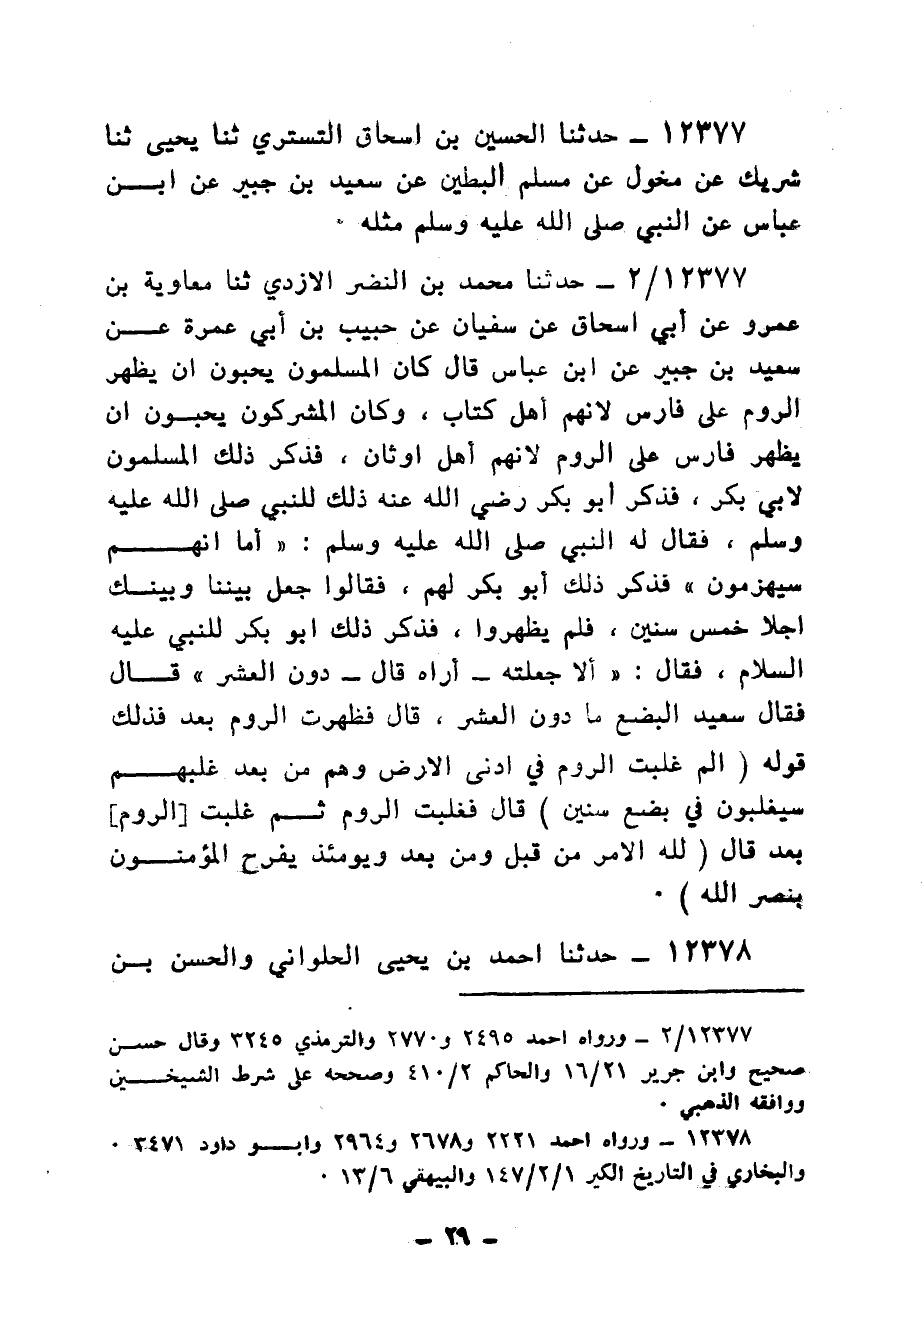 ١٢٣٧٧ ــ حدثنا الحسين بن اسحاق التستري ثنا يحيى ثنا
شريك عن مخول عن مسلم ألبطين عن سعيد بن جبير عن ابـــن
عباس عن النبي صلى الله عليه وسلم مثله ٠
٢/١٢٣٧٧ ــ حدثنا محمد بن النضر الازدي ثنا معاوية بن
عمرو عن أبي اسحاق عن سفيان عن حبيب بن أبي عمرة عـــن
سعيد بن جبير عن ابن عباس قال كان المسلمون يحبون ان يظهر
الروم على فارس لانهم أهل كتاب ، وكان المشركون يحبــون ان
يظهر فارس على الروم لانهم أهل اوثان ، فذكر ذلك المسلمون
لابي بكر ، فذكر أبو بكر رضي الله عنه ذلك للنبي صلى الله عليه
وسلم ، فقال له النبي صلى الله عليه وسلم : « أما انهـــــم
سيهزمون » فذكر ذلك أبو بكر لهم ، فقالوا جعل بيننا وبينــك
اجلا خمس سنين ، فلم يظهروا ، فذكر ذلك ابو بكر للنبي عليه
السلام ، فقال : « ألا جعلته ــ أراه قال ــ دون العشر » قـــال
فقال سعيد البضع ما دون العشر ، قال فظهرت الروم بعد فذلك
قوله ( الم غلبت الروم في ادنى الارض وهم من بعد غلبهـــــم
سيغلبون في بضع سنين ) قال فغلبت الروم ثـــم غلبت [الروم]
بعد قال ( لله الامر من قبل ومن بعد ويومئذ يفرح المؤمنـــون
بنصر الله ) ٠
١٢٣٧٨ ــ حدثنا احمد بن يحيى الحلواني والحسن بــن
٢/١٢٣٧٧ ــ ورواه احمد ٢٤٩٥ و٢٧٧٠ والترمذي ٣٢٤٥ وقال حســن
صحيح وابن جرير ١٦/٢١ والحاكم ٤١٠/٢ وصححه على شرط الشيخـــين
ووافقه الذهبي ٠
١٢٣٧٨ ــ ورواه احمد ٢٢٢١ و٢٦٧٨ و٢٩٦٤ وابـــو داود ٣٤٧١ ٠
والبخاري في التاريخ الكبر ١٤٧/٢/١ والبيهقي ١٣/٦ ٠
ــ ٢٩ ــ